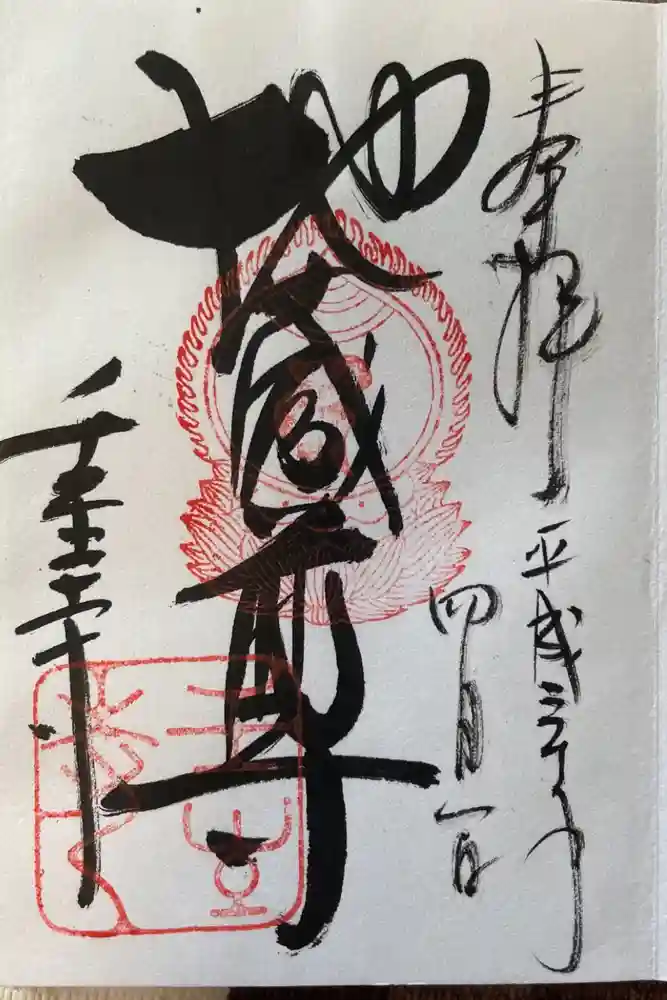 奉拝
平成三十年
四月一日
地蔵尊
壬生寺